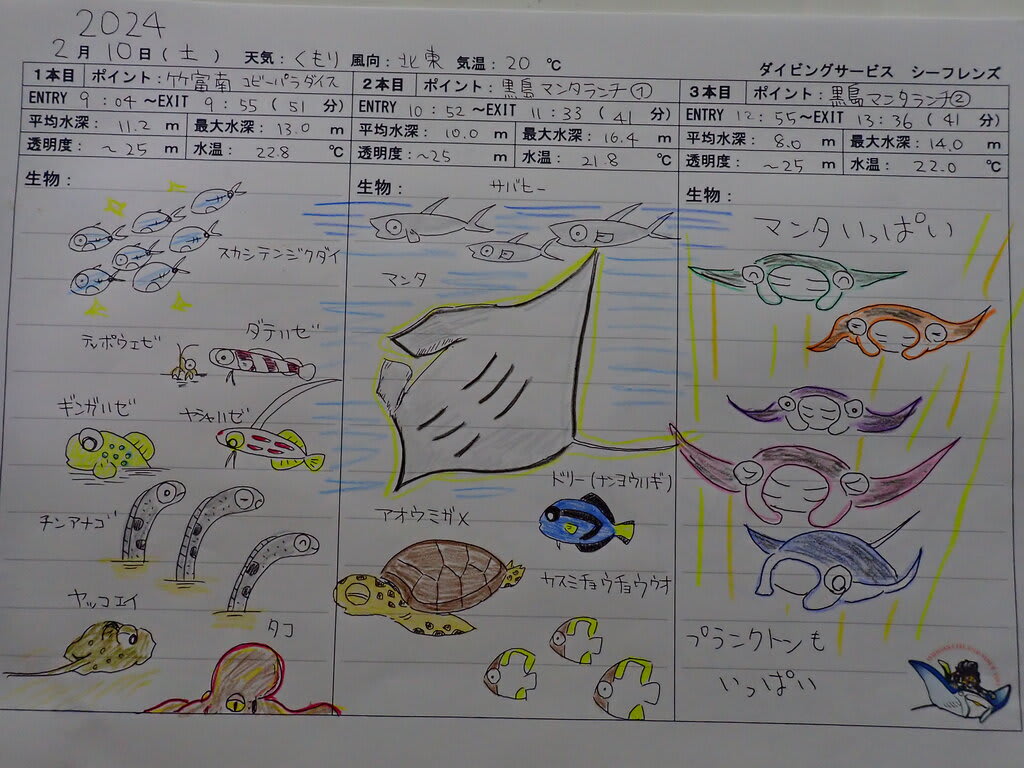 2024
2月10日(土) 天気:くもり 風向:北東 気温:20 ℃
ダイビングサービス シーフレンズ
1本目 ポイント:竹富南 コビーパラダイス
ENTRY 9:04~EXIT 9:55(51分)
平均水深:11.2 m 最大水深:13.0 m
透明度:~25 m 水温:22.8 ℃
生物:
スカシテンジクダイ
テッポウエビ
ダテハゼ
ギンガハゼ
ヤシャハゼ
チンアナゴ
ヤッコエイ
タコ
2本目 ポイント:黒島マンタランチ①
ENTRY 10:52~EXIT 11:33(41分)
平均水深:10.0 m 最大水深:16.4 m
透明度:~25 m 水温:21.8 ℃
生物:
サバヒー
マンタ
ドリー(ナンヨウハギ)
アオウミガメ
カスミチョウチョウウオ
3本目 ポイント:黒島マンタランチ②
ENTRY 12:55~EXIT 13:36(41分)
平均水深:8.0 m 最大水深:14.0 m
透明度:~25 m 水温:22.0 ℃
生物:
マンタいっぱい
プランクトンも
いっぱい